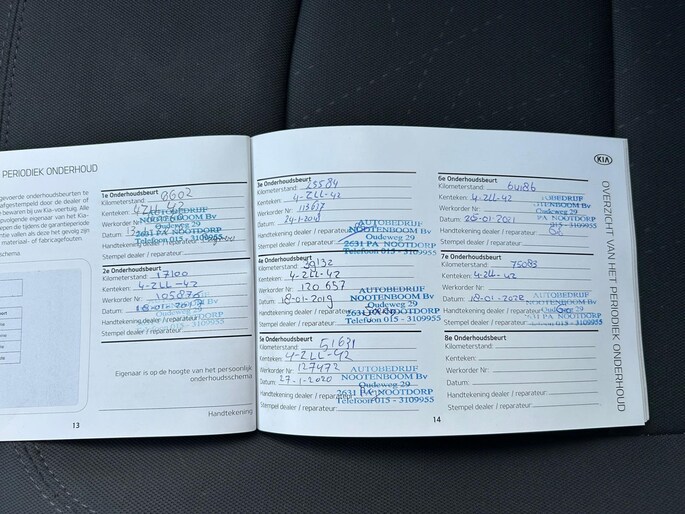 PERIODIEK ONDERHOUD
gevoerde onderhoudsbeurten te
afgestempeld door de dealer of
bewaren bij uw Kia-voertuig. Alle
opvolgende eigenaar van het Kia-
pen de tijdens de garantieperiode
entie vallen als deze het gevolg zijn
materiaal- of fabricagefouten.
schema:
1e Onderhoudsbeurt
Kilometerstand: 8602
Kenteken: 4-ZLL-42
Werkorder Nr:
Datum:
Handtekening dealer / reparateur:
Stempel dealer / reparateur:
AUTOBEDRIJF
NOOTENBOOM Bv
Oudeweg 29
2631 PA NOOTDORP
Telefoon 015 - 3109955
2e Onderhoudsbeurt
Kilometerstand: 17100
Kenteken: 4-ZLL-42
Werkorder Nr: 105875
Datum: 18-01-2017
Handtekening dealer / reparateur:
Stempel dealer / reparateur:
AUTOBEDRIJF
NOOTENBOOM Bv
Oudeweg 29
2631 PA NOOTDORP
Telefoon 015 - 3109955
Eigenaar is op de hoogte van het persoonlijk
onderhoudsschema
Handtekening
13
3e Onderhoudsbeurt
Kilometerstand: 25584
Kenteken: 4-ZLL-42
Werkorder Nr: 113617
Datum: 24-1-2018
Handtekening dealer / reparateur:
Stempel dealer / reparateur:
AUTOBEDRIJF
NOOTENBOOM Bv
Oudeweg 29
2631 PA NOOTDORP
Telefoon 015 - 3109955
4e Onderhoudsbeurt
Kilometerstand: 39132
Kenteken: 4-ZLL-42
Werkorder Nr: 120657
Datum: 18-01-2019
Handtekening dealer / reparateur:
Stempel dealer / reparateur:
AUTOBEDRIJF
NOOTENBOOM Bv
Oudeweg 29
2631 PA NOOTDORP
Telefoon 015 - 3109955
5e Onderhoudsbeurt
Kilometerstand: 51631
Kenteken: 4-ZLL-42
Werkorder Nr: 127472
Datum: 27-1-2020
Handtekening dealer / reparateur:
Stempel dealer / reparateur:
AUTOBEDRIJF
NOOTENBOOM Bv
Oudeweg 29
2631 PA NOOTDORP
Telefoon 015 - 3109955
14
6e Onderhoudsbeurt
Kilometerstand: 64186
Kenteken: 4-ZLL-42
Werkorder Nr:
Datum: 25-01-2021
Handtekening dealer / reparateur:
Stempel dealer / reparateur:
AUTOBEDRIJF
NOOTENBOOM Bv
Oudeweg 29
PA NOOTDORP
015 - 3109955
7e Onderhoudsbeurt
Kilometerstand: 75083
Kenteken: 4-ZLL-42
Werkorder Nr:
Datum: 18-01-2022
Handtekening dealer / reparateur:
Stempel dealer / reparateur:
AUTOBEDRIJF
NOOTENBOOM Bv
Oudeweg 29
PA NOOTDORP
015 - 3109955
8e Onderhoudsbeurt
Kilometerstand:
Kenteken:
Werkorder Nr:
Datum:
Handtekening dealer / reparateur:
Stempel dealer / reparateur:
KIA
OVERZICHT VAN HET PERIODIEK ONDERHOUD